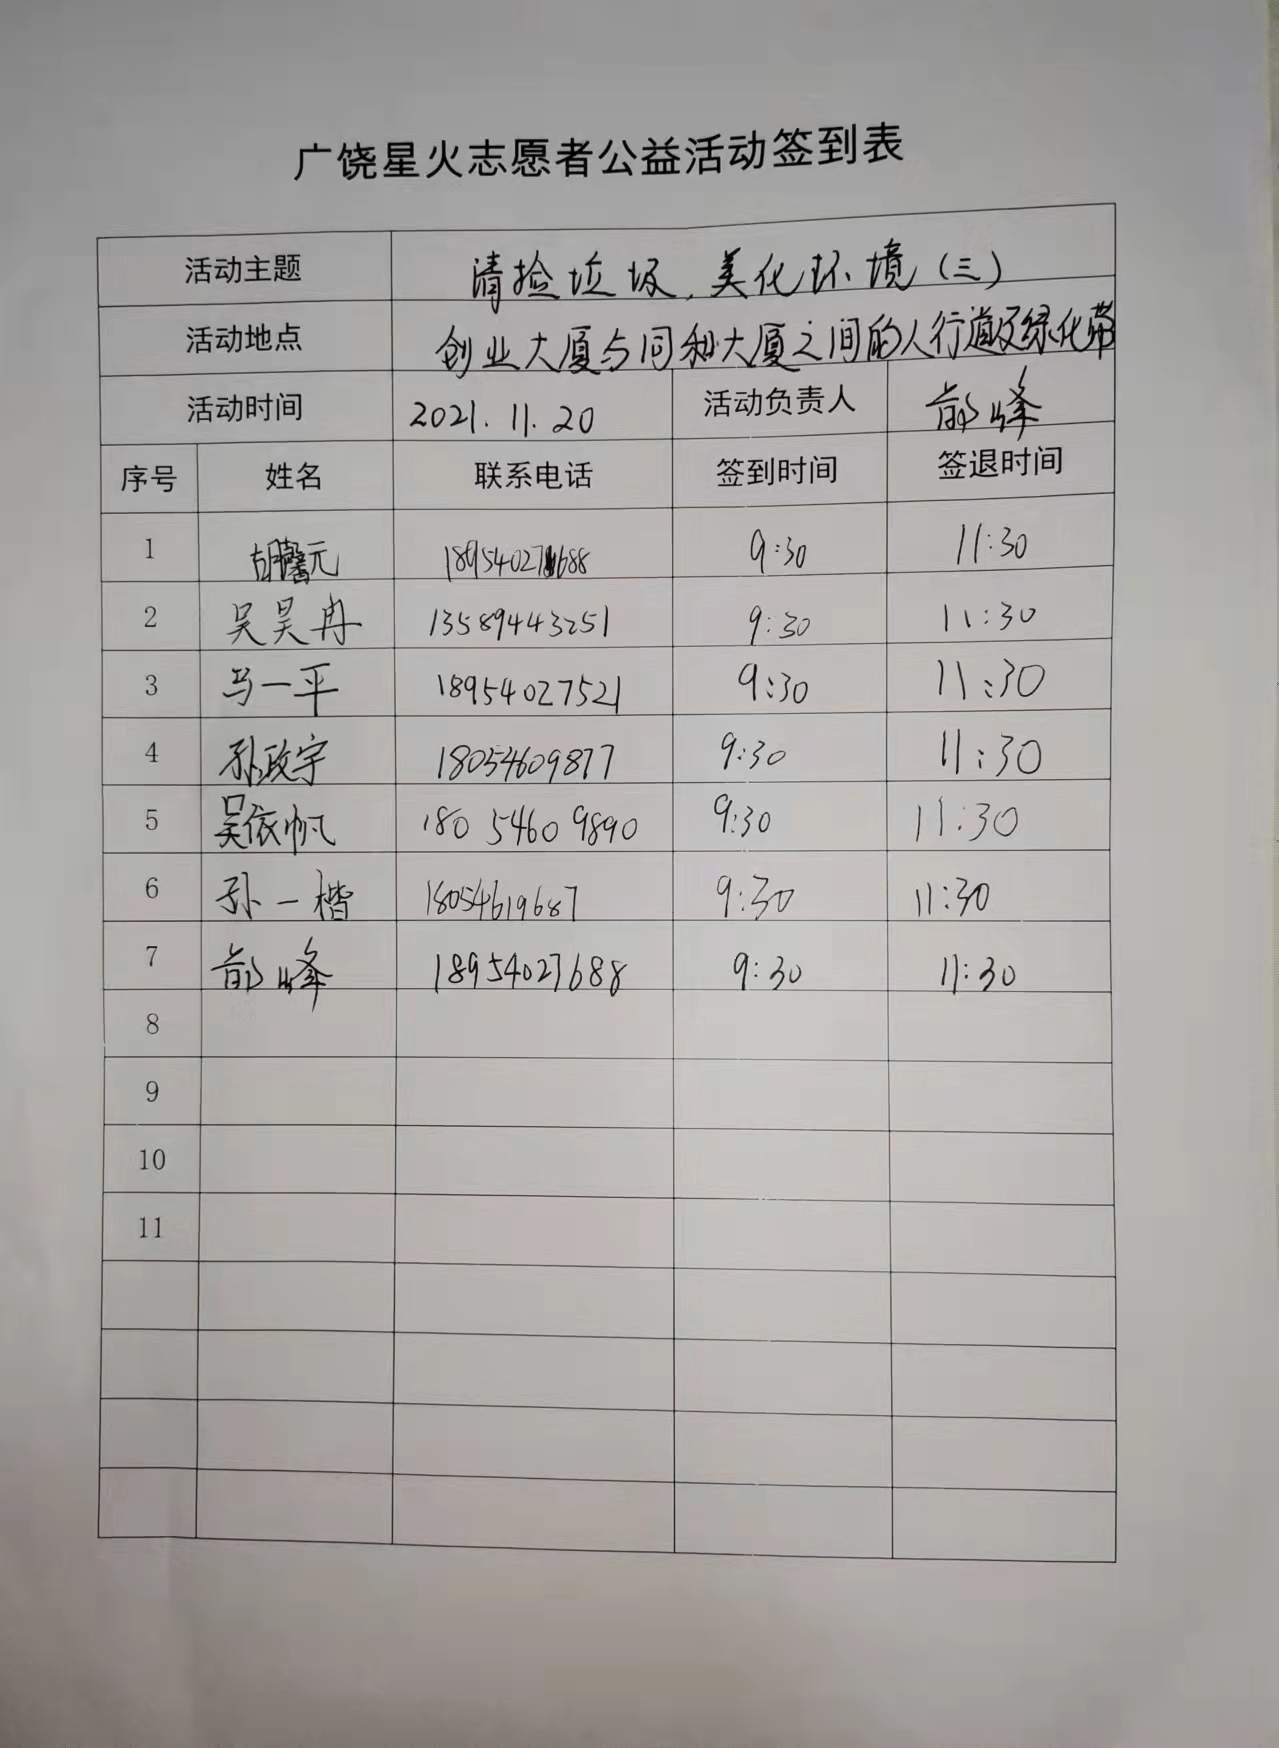 广饶星火志愿者公益活动签到表
活动主题 清捡垃圾,美化环境(三)
活动地点 创业大厦与同和大厦之间的人行道及绿化带
活动时间 2021.11.20 活动负责人 峰
序号 姓名 联系电话 签到时间 签退时间
1 胡馨元 18954027688 9:30 11:30
2 吴昊冉 13589443251 9:30 11:30
3 马一平 18954027521 9:30 11:30
4 孙政宇 18054609877 9:30 11:30
5 吴依帆 180 5460 9890 9:30 11:30
6 孙一楷 18054619687 9:30 11:30
7 峰 18954027688 9:30 11:30
8
9
10
11